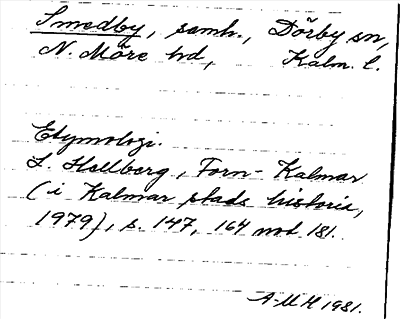 Smedby, samh., Dörby sn,
N. Möre hd, Kalm. l.
Etymologi.
L. Hellberg, Forn-Kalmar
(i Kalmar stads historia,
1979), s. 147, 164 not 181.
A-M H 1981.